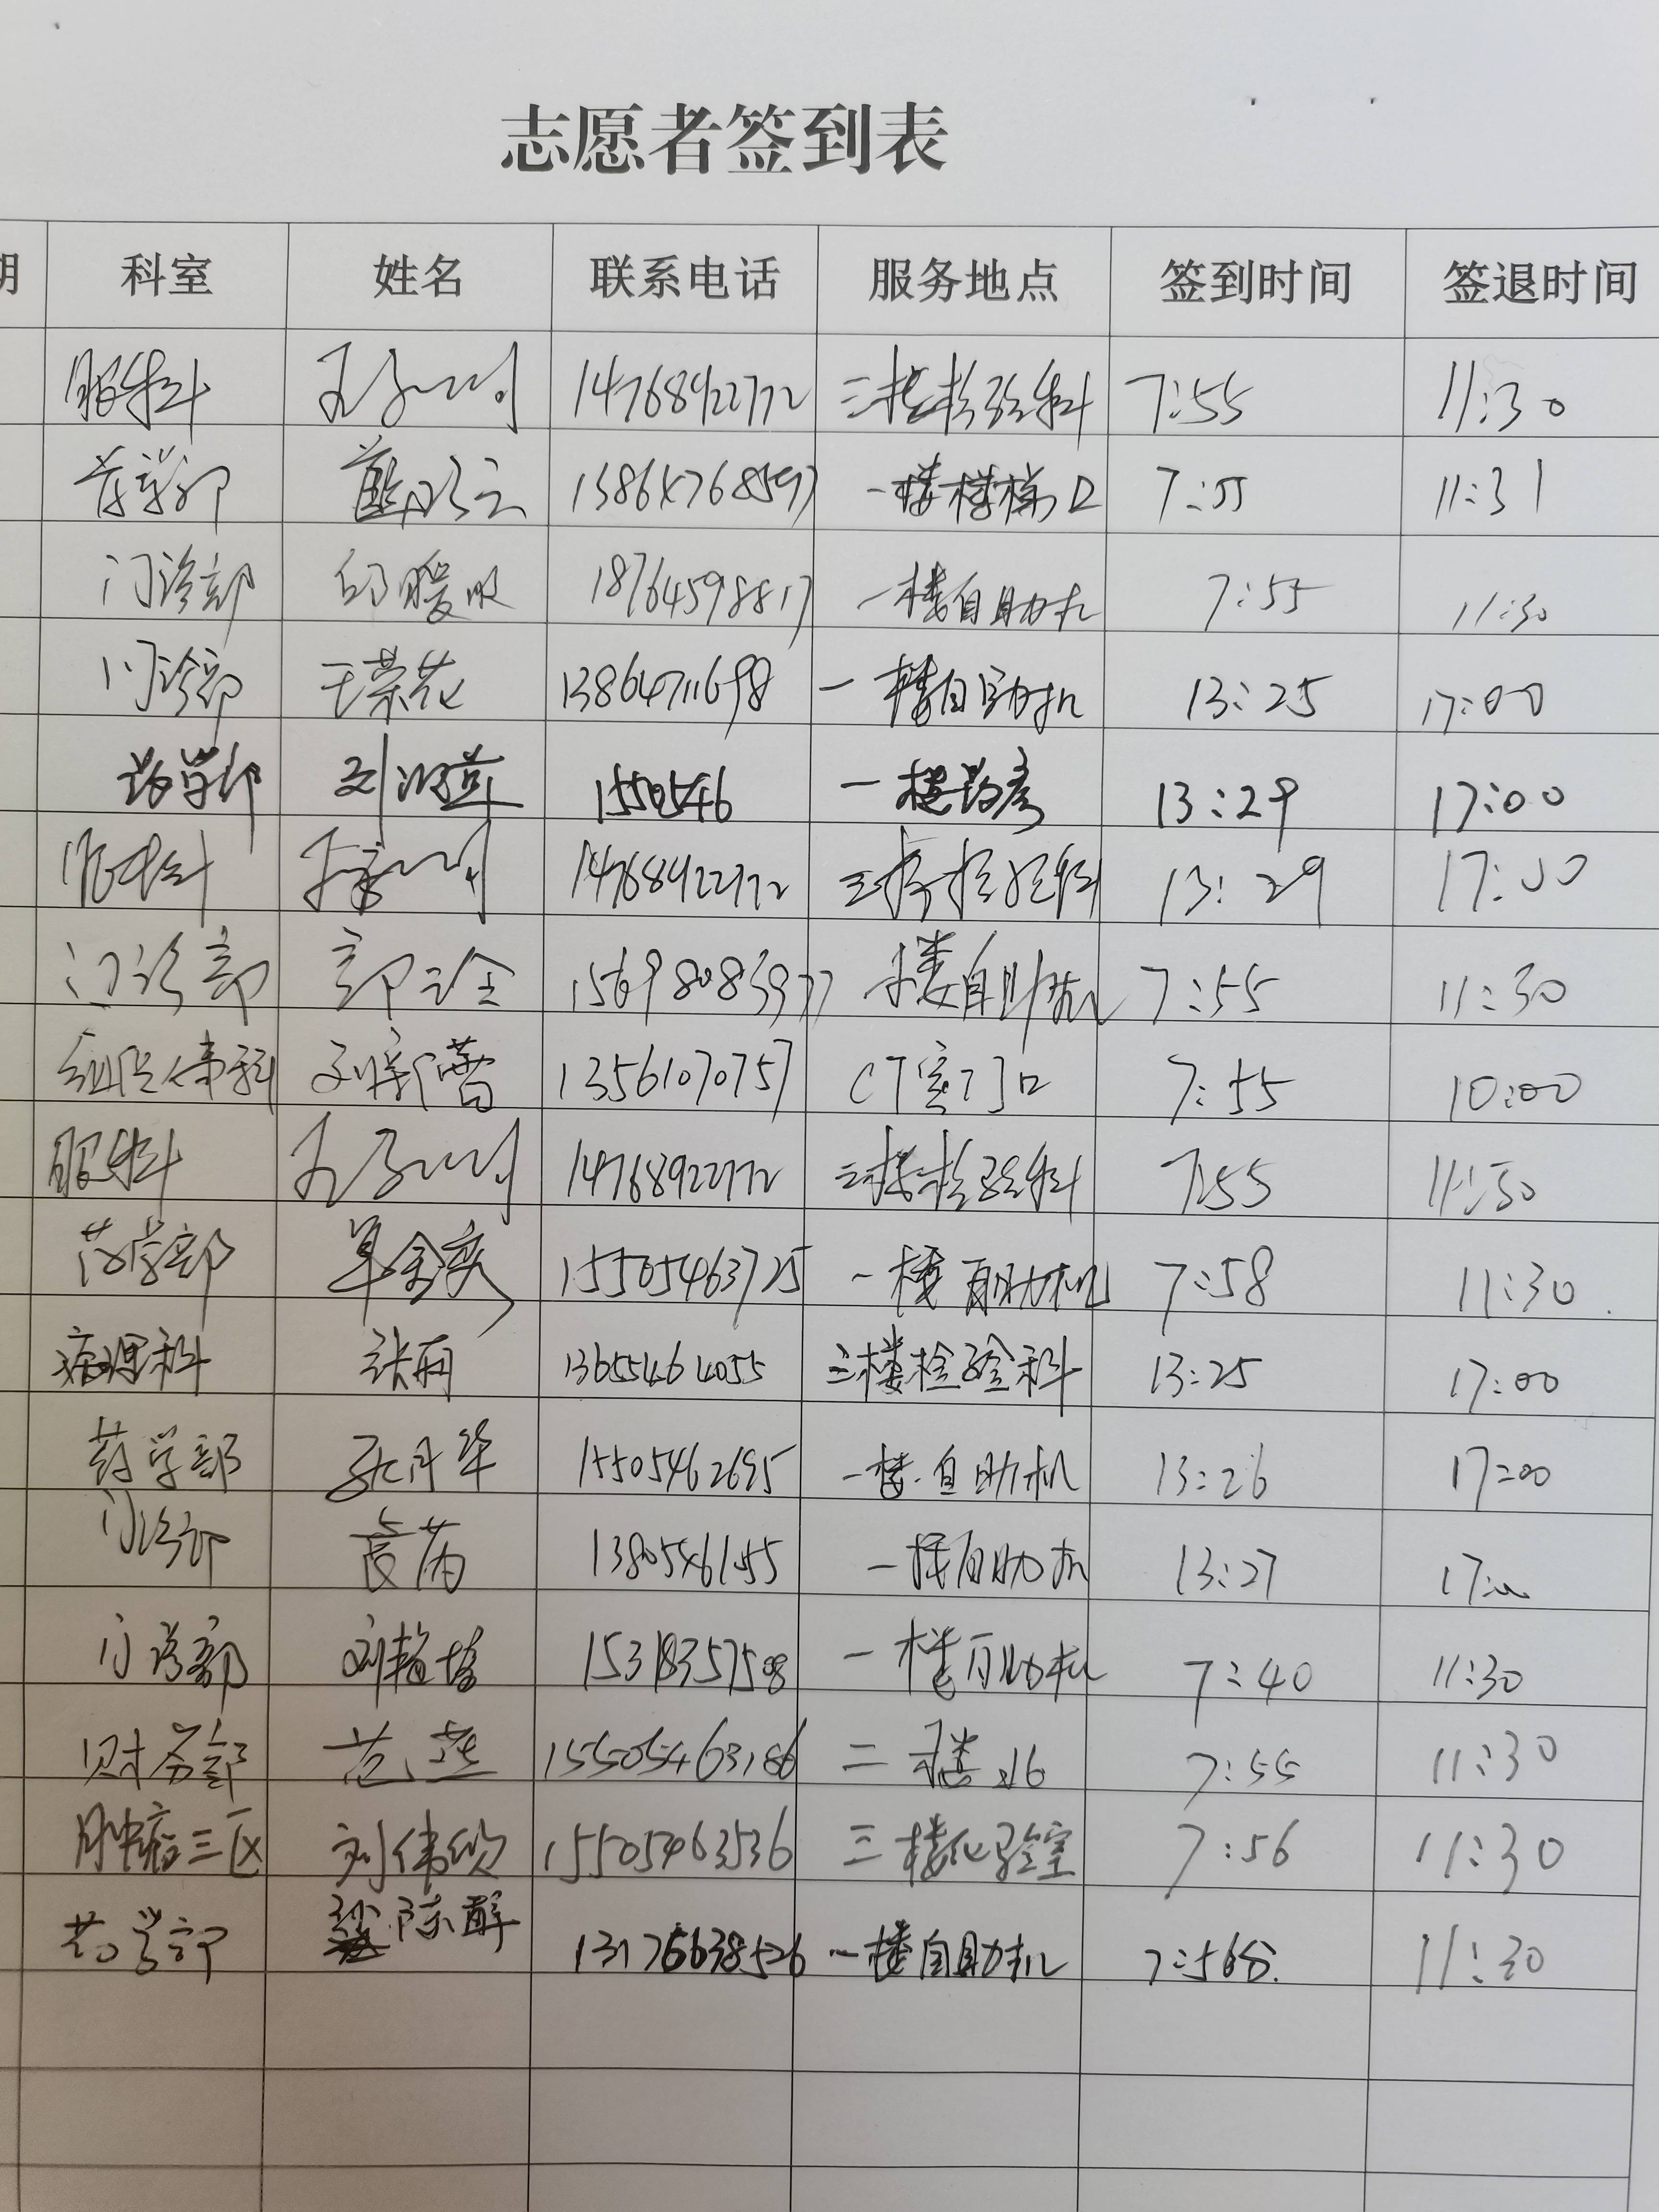 志愿者签到表
期 科室 姓名 联系电话 服务地点 签到时间 签退时间
眼科 14768922772 三楼检验科 7:55 11:30
药学部 13864768597 一楼楼梯口 7:55 11:31
门诊部 18764598817 一楼自助机 7:55 11:30
门诊部 王荣花 13864711698 一楼自助机 13:25 17:00
药学部 1550546 一楼药房 13:29 17:00
眼科 14768922772 三楼检验科 13:29 17:00
门诊部 15698083977 楼自助机 7:55 11:30
刘新蕾 13561070757 CT室门口 7:55 10:00
眼科 14768922772 三楼检验科 7:55 11:30
药学部 单金英 15505463725 一楼自助机 7:58 11:30
病理科 张丽 13655464055 三楼检验科 13:25 17:00
药学部 张月华 15505462695 一楼自助机 13:26 17:00
门诊部 一楼自助机 13:27 17:00
门诊部 15318357508 一楼自助机 7:40 11:30
财务部 范燕 15505463186 二楼 7:55 11:30
肿瘤三区 15505463536 三楼化验室 7:56 11:30
药学部 陈醉 13176638526 一楼自助机 11:30